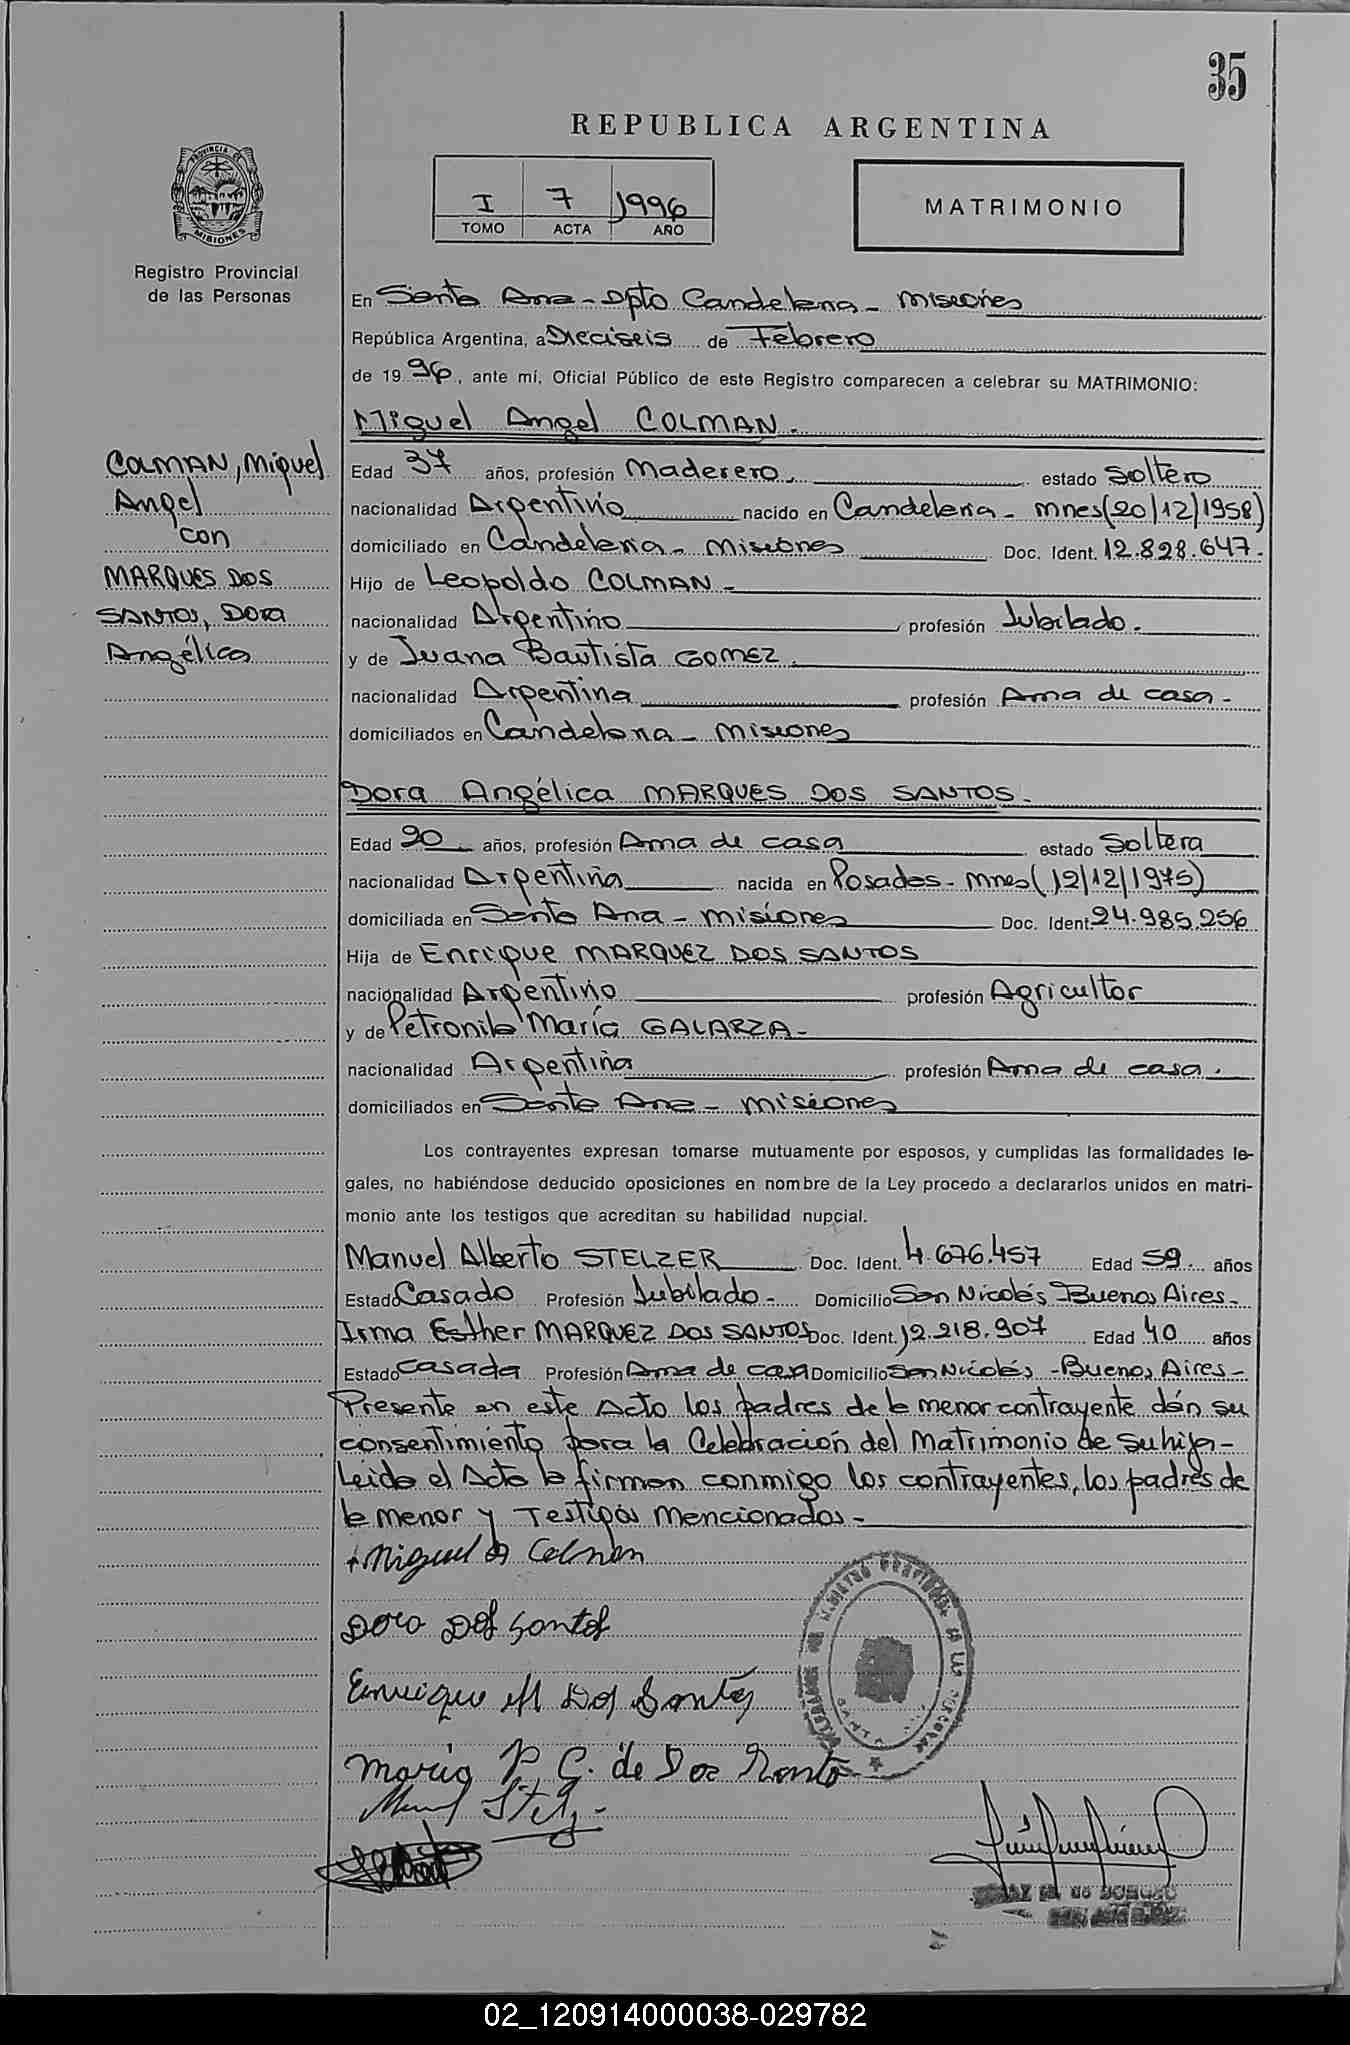 35
REPUBLICA ARGENTINA
I 7 1996
TOMO ACTA AÑO
MATRIMONIO
PROVINCIA DE
MISIONES
Registro Provincial
de las Personas
COLMAN, Miguel
Angel
con
MARQUES DOS
SANTOS, Dora
Angélica
En Santa Ana - Dpto Candelaria - Misiones
República Argentina, a Dieciseis de Febrero
de 19 96, ante mí, Oficial Público de este Registro comparecen a celebrar su MATRIMONIO:
Miguel Angel COLMAN.
Edad 37 años, profesión Maderero. estado Soltero
nacionalidad Argentino nacido en Candelaria - Mnes (20/12/1958)
domiciliado en Candelaria - Misiones Doc. Ident. 12.828.647.
Hijo de Leopoldo COLMAN -
nacionalidad Argentino profesión Jubilado.
y de Juana Bautista GOMEZ.
nacionalidad Argentina profesión Ama de casa -
domiciliados en Candelaria - Misiones
Dora Angélica MARQUES DOS SANTOS.
Edad 20 años, profesión Ama de casa estado Soltera
nacionalidad Argentina nacida en Posadas - Mnes (12/12/1975)
domiciliada en Santa Ana - Misiones Doc. Ident. 24.985.256
Hija de Enrique MARQUEZ DOS SANTOS
nacionalidad Argentino profesión Agricultor
y de Petronila María GALARZA -
nacionalidad Argentina profesión Ama de casa.
domiciliados en Santa Ana - Misiones
Los contrayentes expresan tomarse mutuamente por esposos, y cumplidas las formalidades le-
gales, no habiéndose deducido oposiciones en nombre de la Ley procedo a declararlos unidos en matri-
monio ante los testigos que acreditan su habilidad nupcial.
Manuel Alberto STELZER Doc. Ident. 4.676.457 Edad 59 años
Estado Casado Profesión Jubilado - Domicilio San Nicolás Buenos Aires -
Irma Esther MARQUEZ DOS SANTOS Doc. Ident. 12.218.907 Edad 40 años
Estado Casada Profesión Ama de casa Domicilio San Nicolás - Buenos Aires -
Presente en este Acto los padres de la menor contrayente dán su
consentimiento para la Celebración del Matrimonio de su hija -
Leida el Acta la firman conmigo los contrayentes, los padres de
la menor y Testigos Mencionados -
Miguel A Colman
Dora Dos Santos
Enrique M Dos Santos
Maria P G. de Dos Santo
02_120914000038-029782